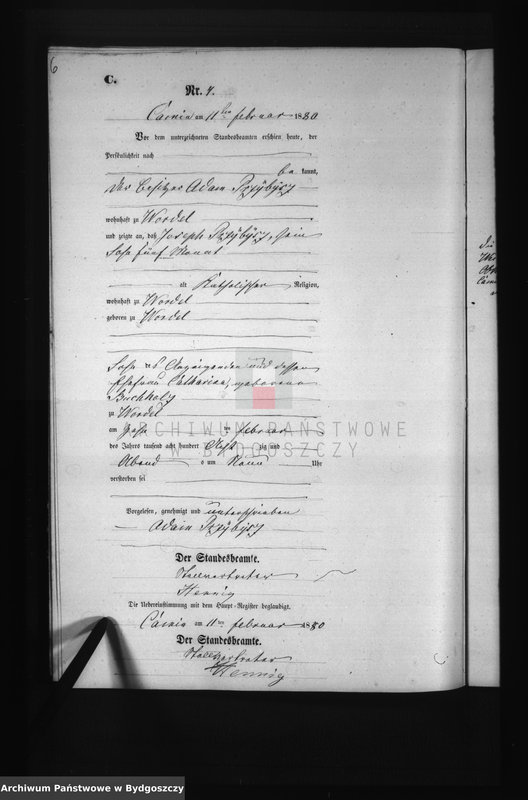 6
C.
Nr. 4.
am 11ten februar 1880
Vor dem unterzeichneten Standesbeamten erschien heute, der
Persönlichkeit nach
be kannt,
der Besitzer Adam
wohnhaft zu Wordel
und zeigte an, daß Joseph sein
Sohn fünf Monat
alt Katholischer Religion,
wohnhaft zu Wordel
geboren zu Wordel
Sohn des Anzeigenden und dessen
Ehefrau Catharina, geborene
Buchholz
zu Wordel
am ten februar
des Jahres tausend acht hundert Acht zig und
Abend s um Neun Uhr
verstorben sei
Vorgelesen, genehmigt und unterschrieben
Adam
Der Standesbeamte.
Stellvertreter
Hennig
Die Uebereinstimmung mit dem Haupt-Register beglaubigt.
am 11ten februar 1880
Der Standesbeamte.
Stellvertreter
Hennig
ARCHIWUM PAŃSTWOWE
W BYDGOSZCZY
Archiwum Państwowe w Bydgoszczy